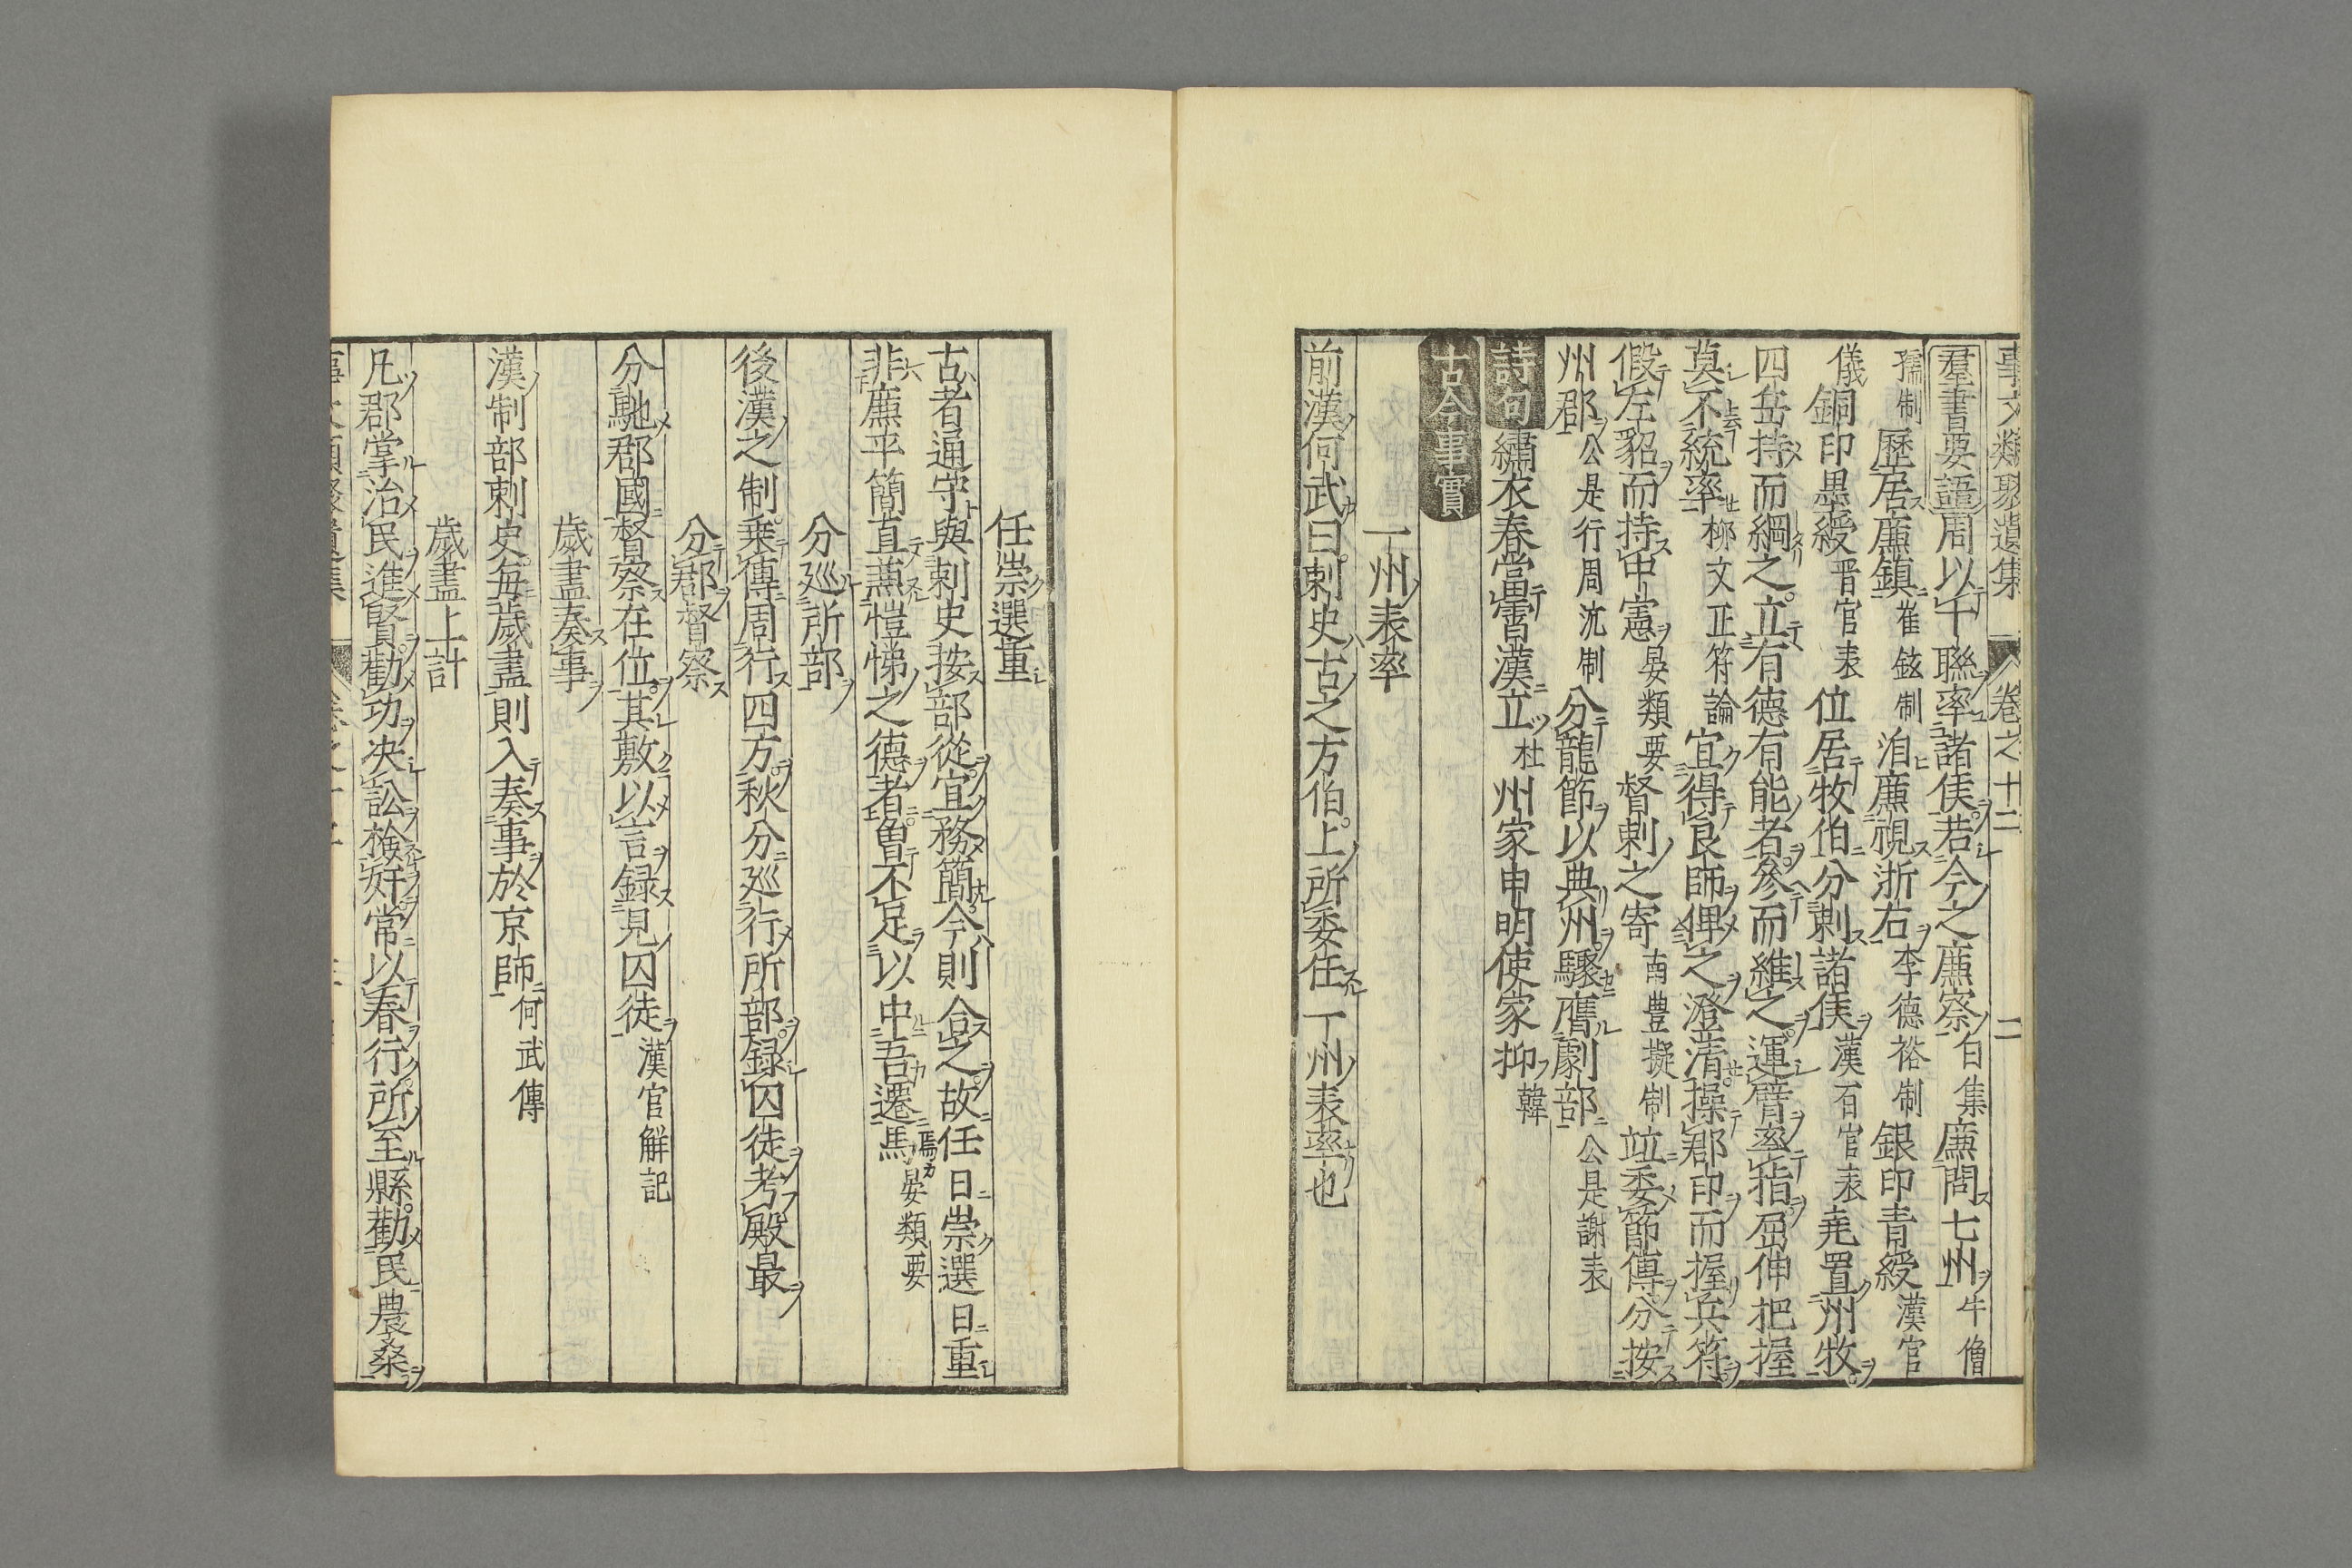 事文類聚遺集 卷之十二 二
羣書要語周以千聯率諸侯若今之廉察白集廉問七州牛僧
孺制歷居廉鎮崔鉉制洎廉視浙右李德裕制銀印青綬漢官
儀銅印墨綬晋官表位居牧伯分刺諸侯漢百官表堯置州牧
四岳持而綱之立有德有能者參而維之運臂率指屈伸把握
莫不統率柳文正符論宜得良師俾之澄清操郡印而握兵符
假左貂而持中憲晏類要督刺之寄南豊擬制竝委節傳分按
州郡公是行周沆制分龍節以典州驟膺劇部公是謝表
詩句繡衣春當霄漢立杜州家申明使家抑韓
古今事實
一州表率
前漢何武曰刺史古之方伯上所委任一州表率也
任崇選重
古者通守與刺史按部從宜務簡今則合之故任日崇選日重
非廉平簡直蒹愷悌之德者曽不足以中吾遷馬焉カ晏類要
分廵所部
後漢之制乗傳周行四方秋分廵行所部録囚徒考殿最
分郡督察
分馳郡國督察在位其敷以言録見囚徒漢官解記
歳盡奏事
漢制部刺史毎歳盡則入奏事於京師何武傳
歳盡上計
凡郡掌治民進賢勸功决訟檢奸常以春行所至縣勸民農桑